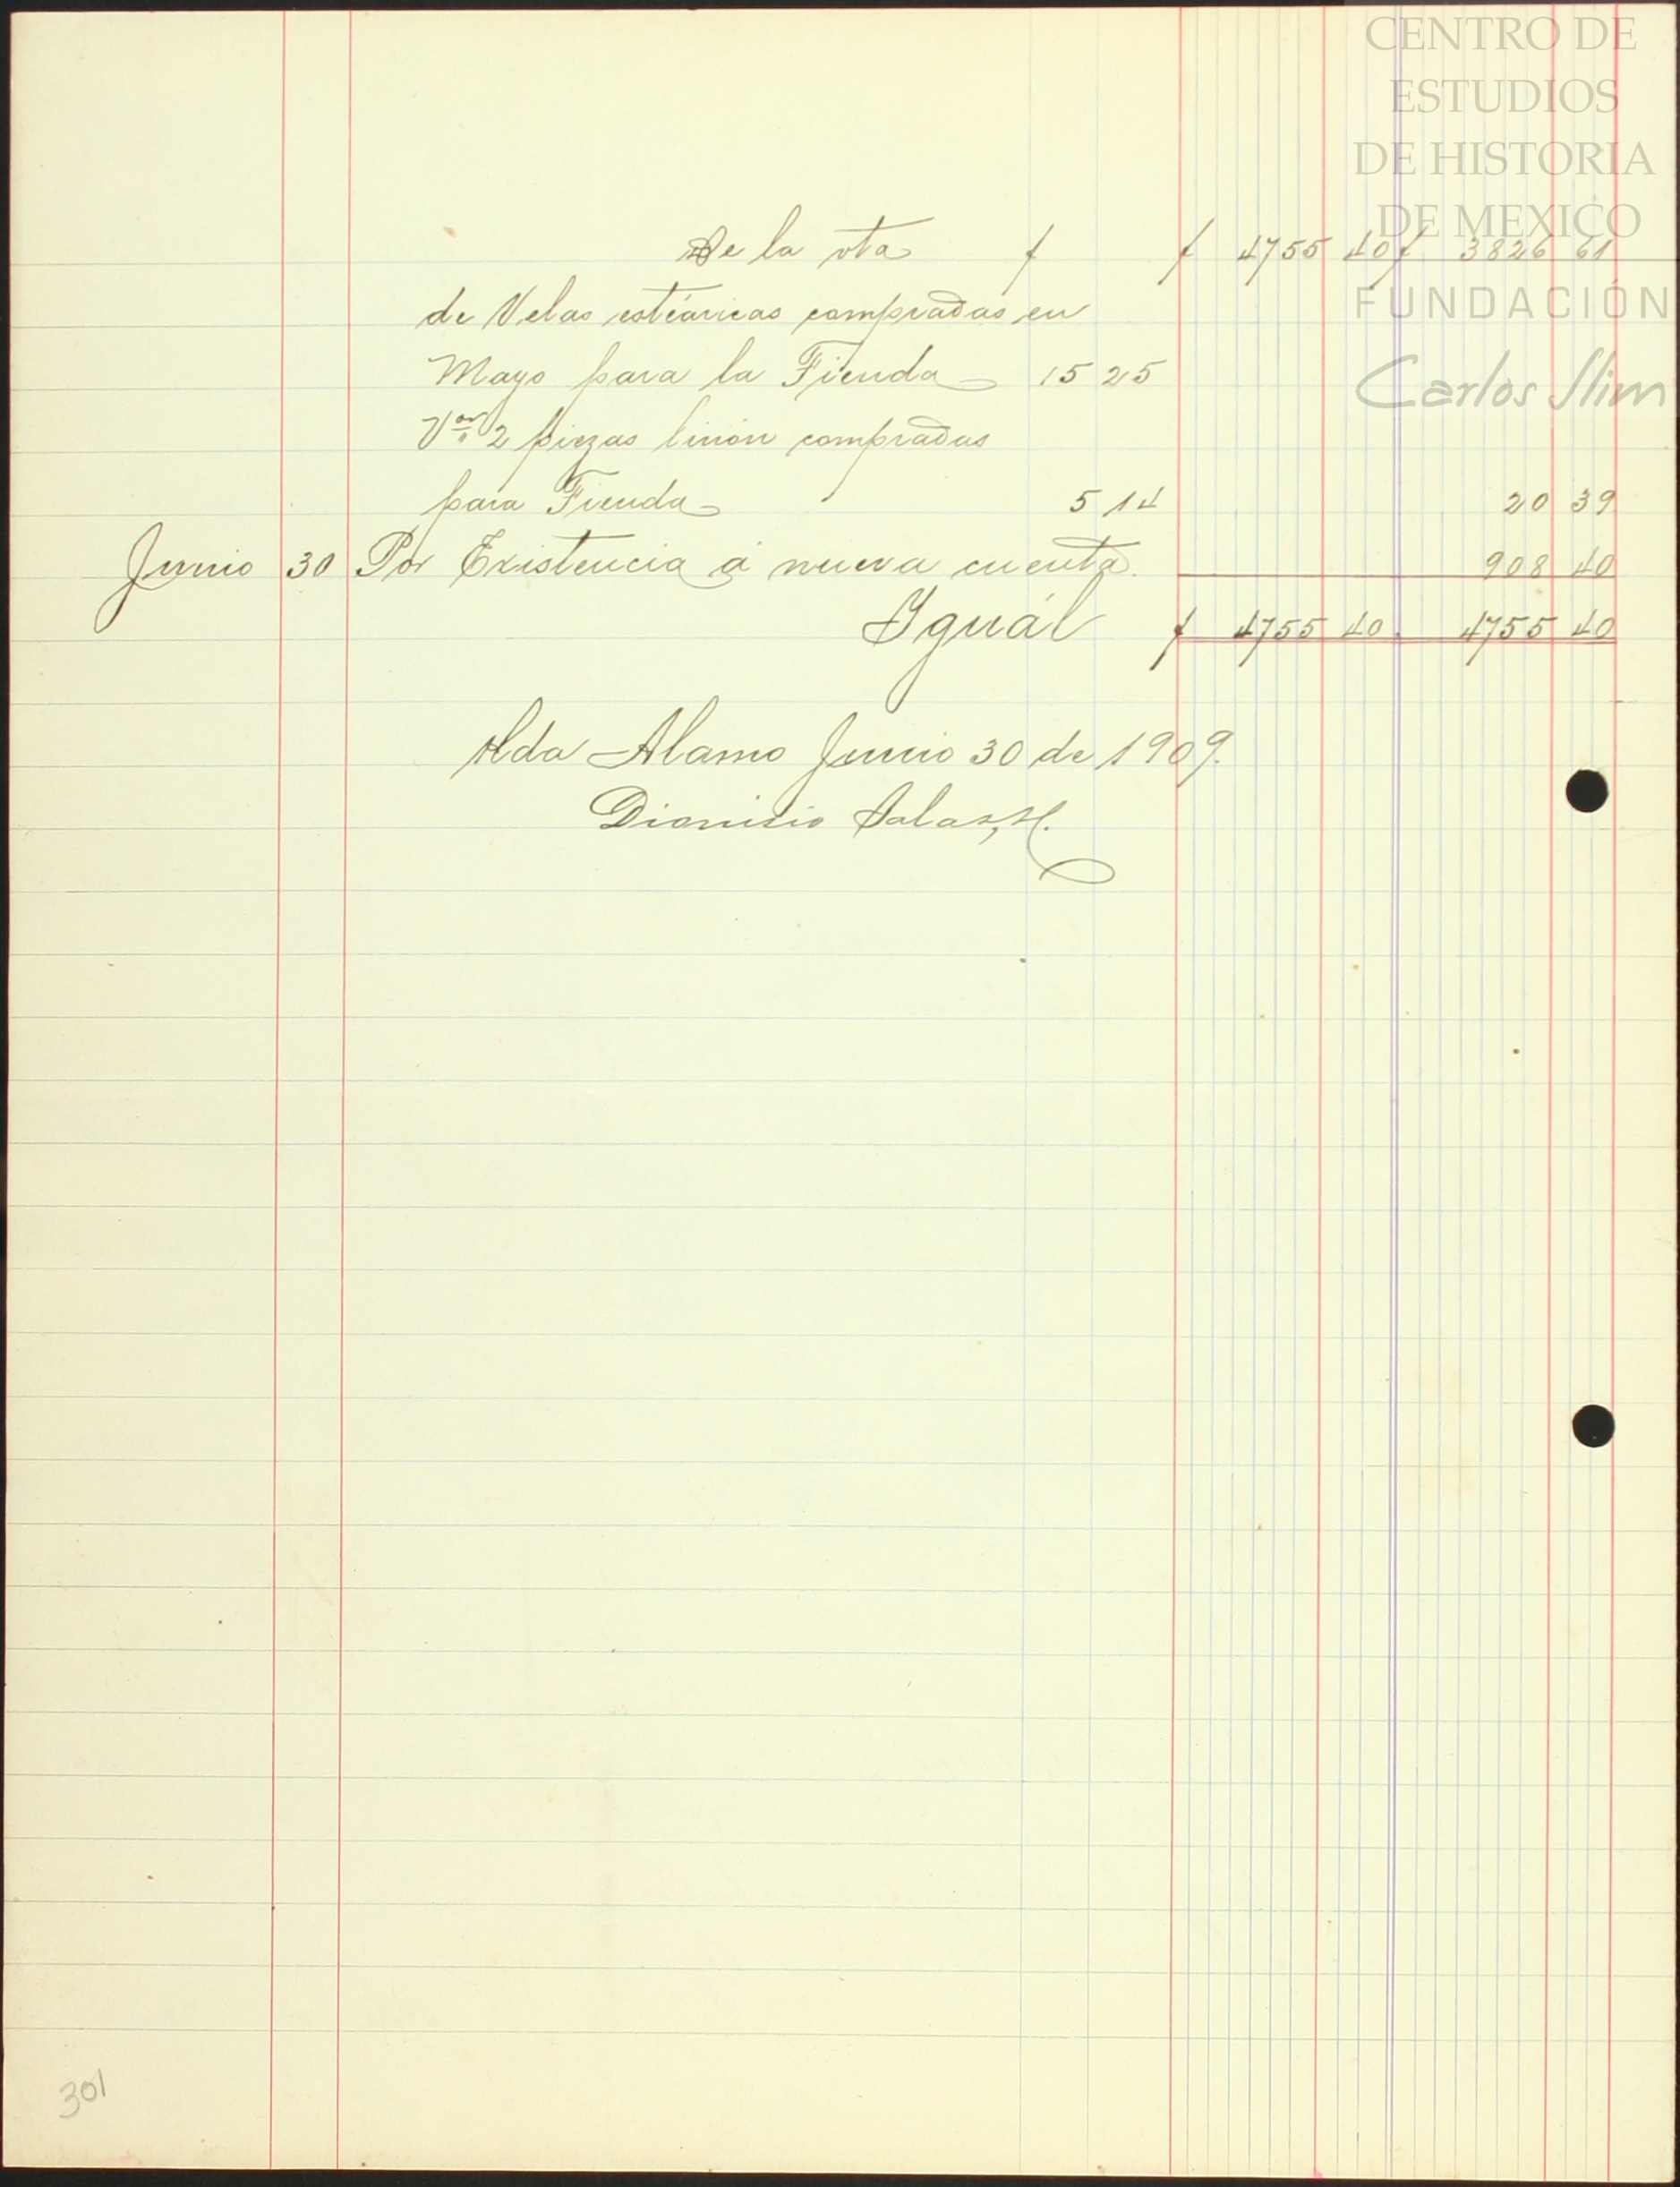 CENTRO DE
ESTUDIOS
DE HISTORIA
DE MEXICO
FUNDACIÓN
Carlos Slim
De la vta $ $ 4755 40 $ 3826 61
de Velas esteáricas compradas en
Mayo para la Tienda 15 25
Vor 2 piezas linón compradas
para Tienda 5 14 20 39
Junio 30 Por Existencia á nueva cuenta. 908 40
Iguál $ 4755 40 4755 40
Hda Alamo Junio 30 de 1909.
Dionisio Salas, H.
301